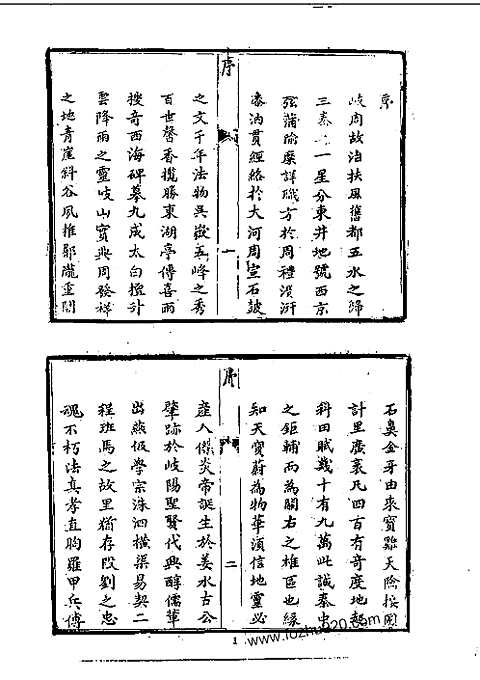 序
岐周故治扶風舊都五水之歸
三秦之一星分東井地號西京
弦蒲喻糜詳職方於周禮淇汧
漆汭貫經絡於大河周宣石鼓
序
一
之文千年法物吳嶽五峰之秀
百世馨香攬勝東湖亭傳喜雨
搜奇西海碑摹九成太白擅升
雲降雨之靈岐山實興周發祥
之地青崖斜谷風推郿隴重關
石鼻金牙由來寶雞天險按圖
計里廣袤凡四百有奇度地起
科田賦幾十有九萬此誠秦中
之鉅輔而為關右之雄區也緣
知天寶蔚為物華須信地靈必
序
二
產人傑炎帝誕生於姜水古公
肇跡於岐陽聖賢代興醇儒輩
出燕伋學宗洙泗橫渠易契二
程班馬之故里猶存段劉之忠
魂不朽法真孝直胸羅甲兵傅
1
www.fozhu920.com